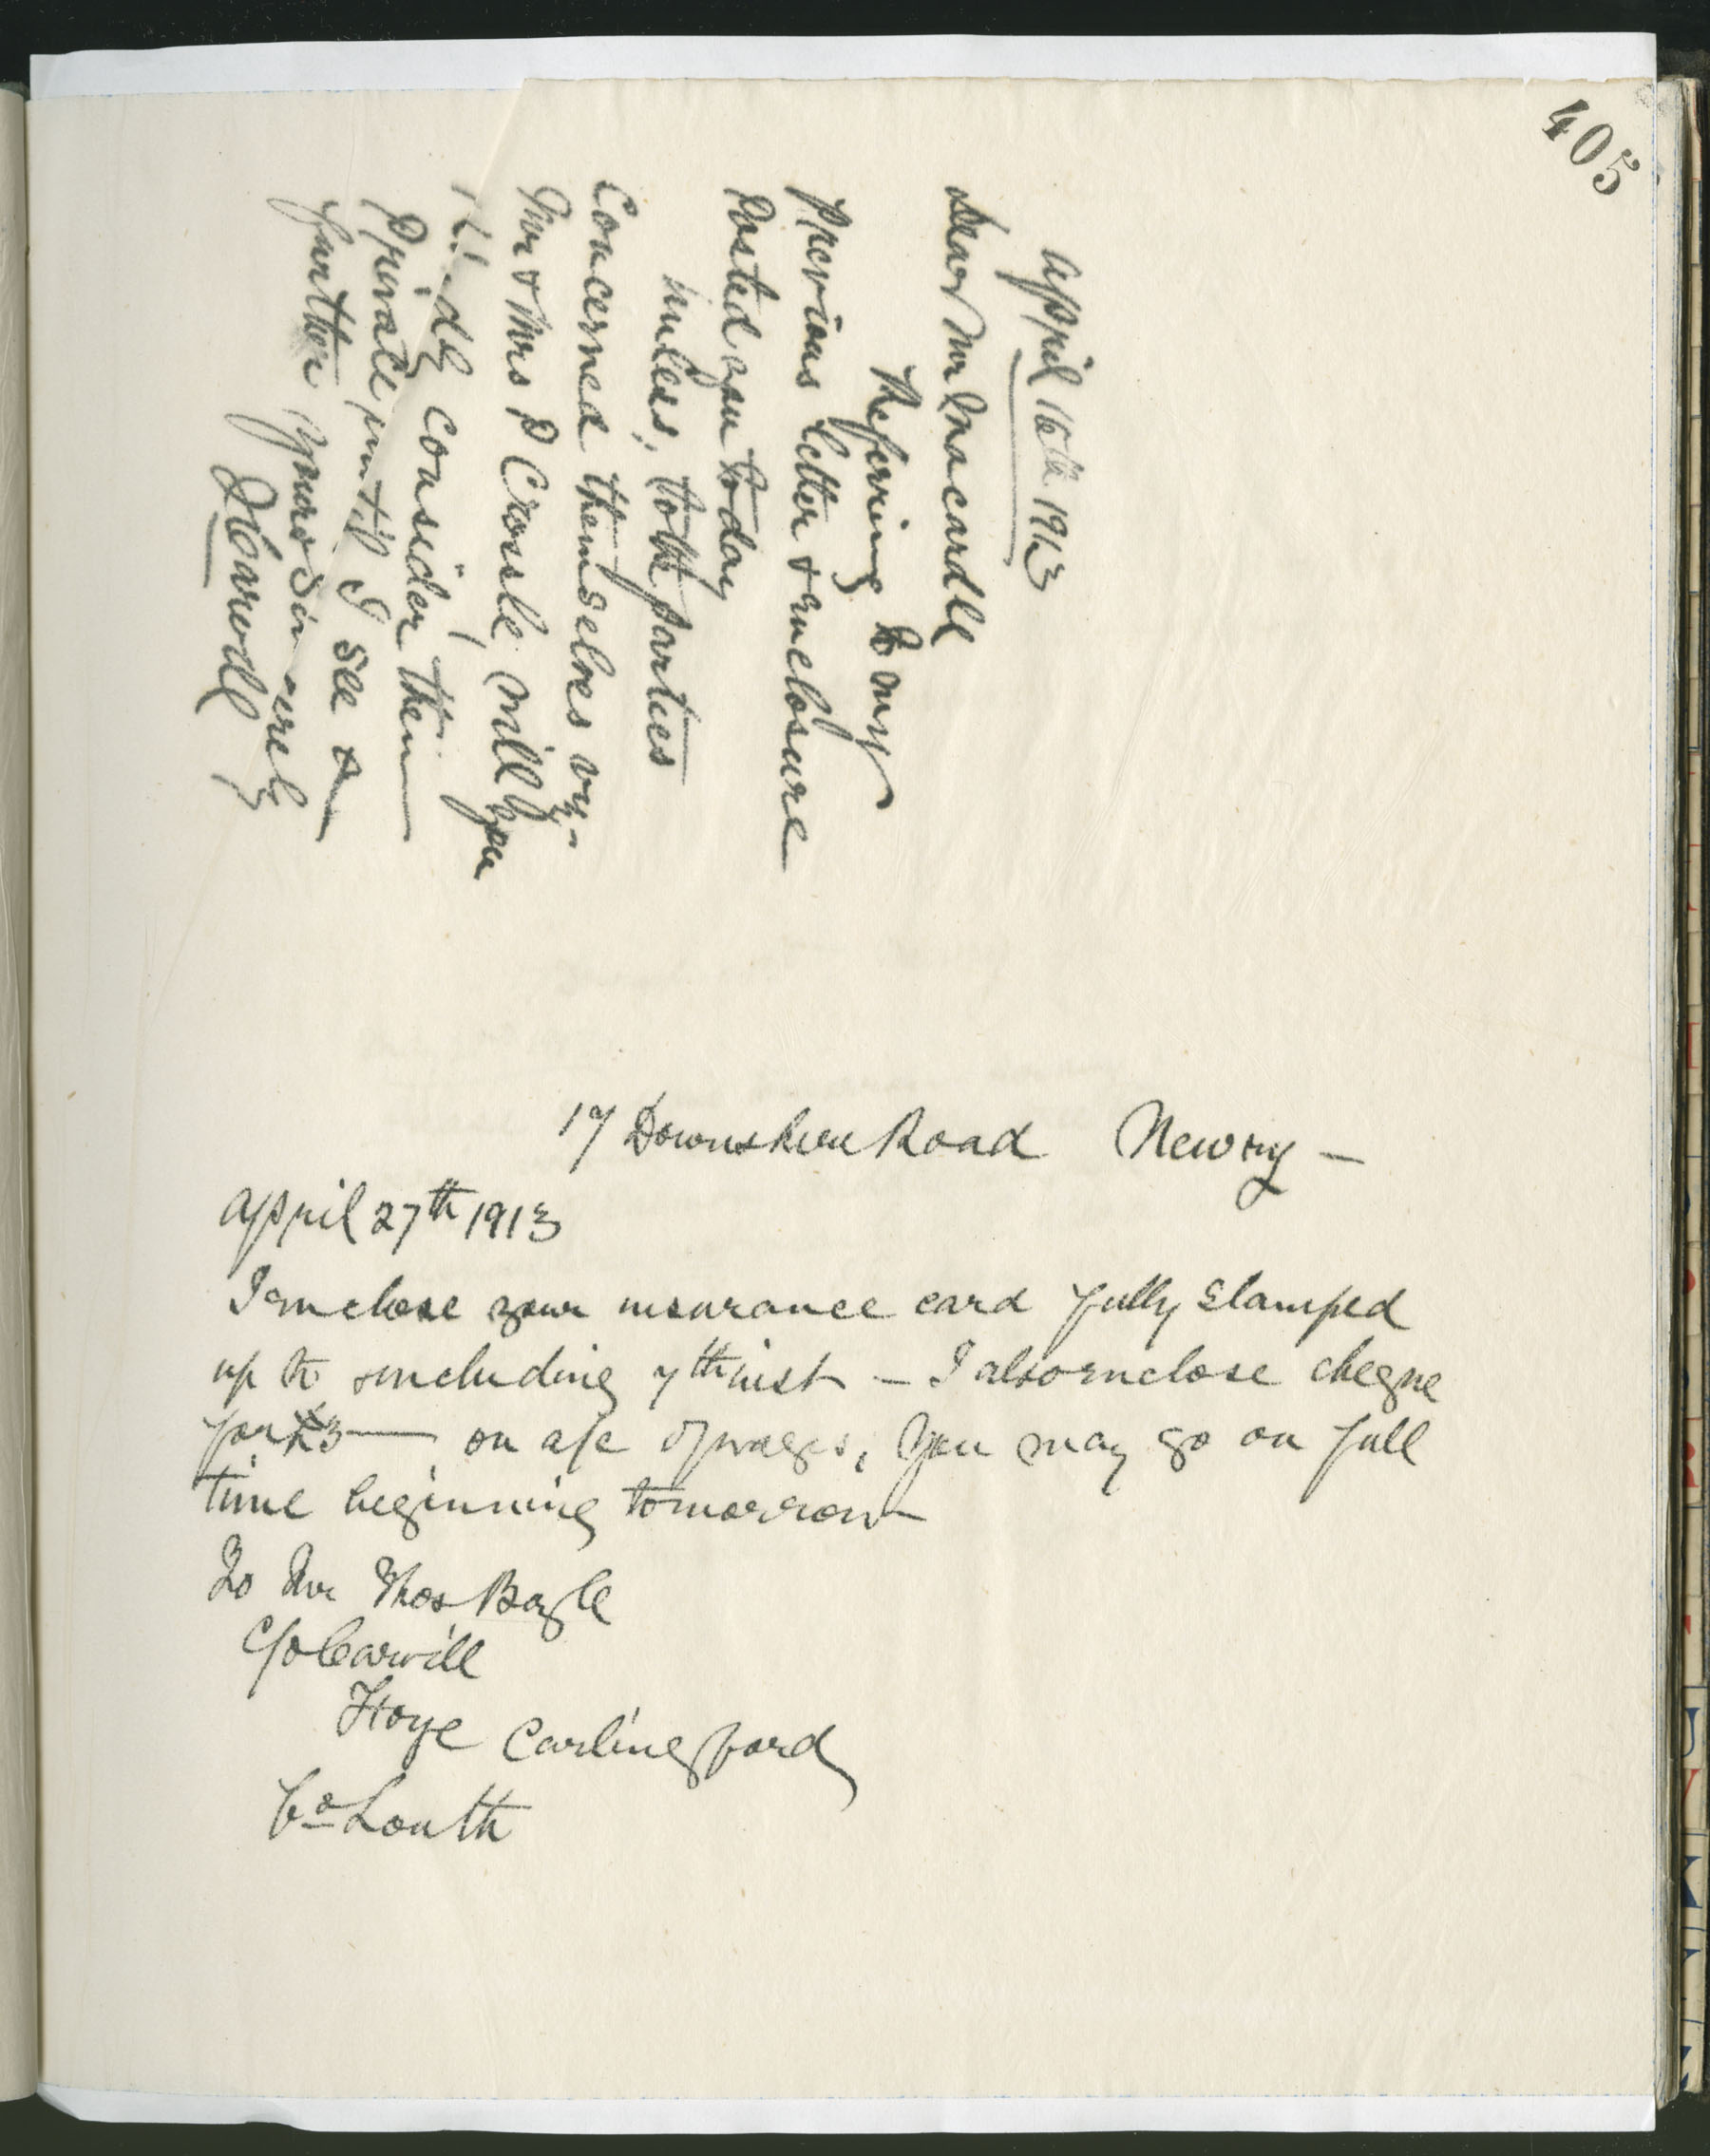 405
April 16th 1913
Dear Mr Macardle
Referring to my
previous letter & enclosure
Posted you today
unless, to the parties
Concerned themselves viz-
Mr & Mrs P Crossle will you
Kindly consider them
private until I see or
further Yours Sincerely
J Carvill
17 Downshire Road Newry —
April 27th 1913
I enclose your insurance card fully stamped
up to & including 7th inst — I also enclose cheque
for £3 — on a/c of wages, You may go on full
time beginning tomorrow
To Mr Thos Boyle
C/o Carvill
Carlingford
Co Louth